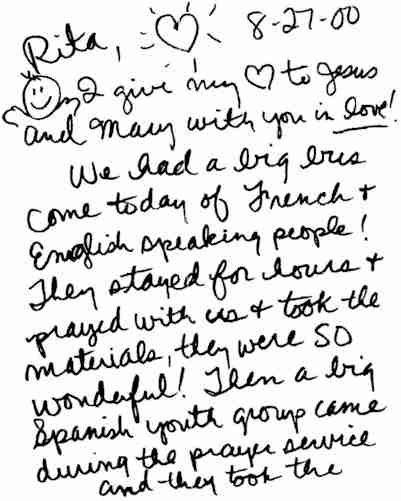 Rita, 8-27-00
I give my ♡ to Jesus
and Mary with you in love!
We had a big bus
come today of French +
English speaking people!
They stayed for hours +
prayed with us + took the
materials, they were SO
wonderful! Then a big
Spanish youth group came
during the prayer service
and they took the